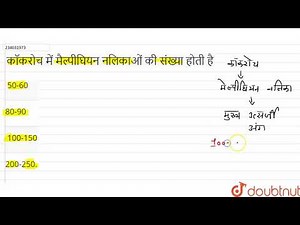 कॉकरोच में मैल्पीघियन नलिकाओं की संख्या होती है
50-60
80-90
100-150
200-250.
कॉकरोच
मैल्पीघियन नलिका
मुख्य उत्सर्जी
अंग
100-
doubtnut